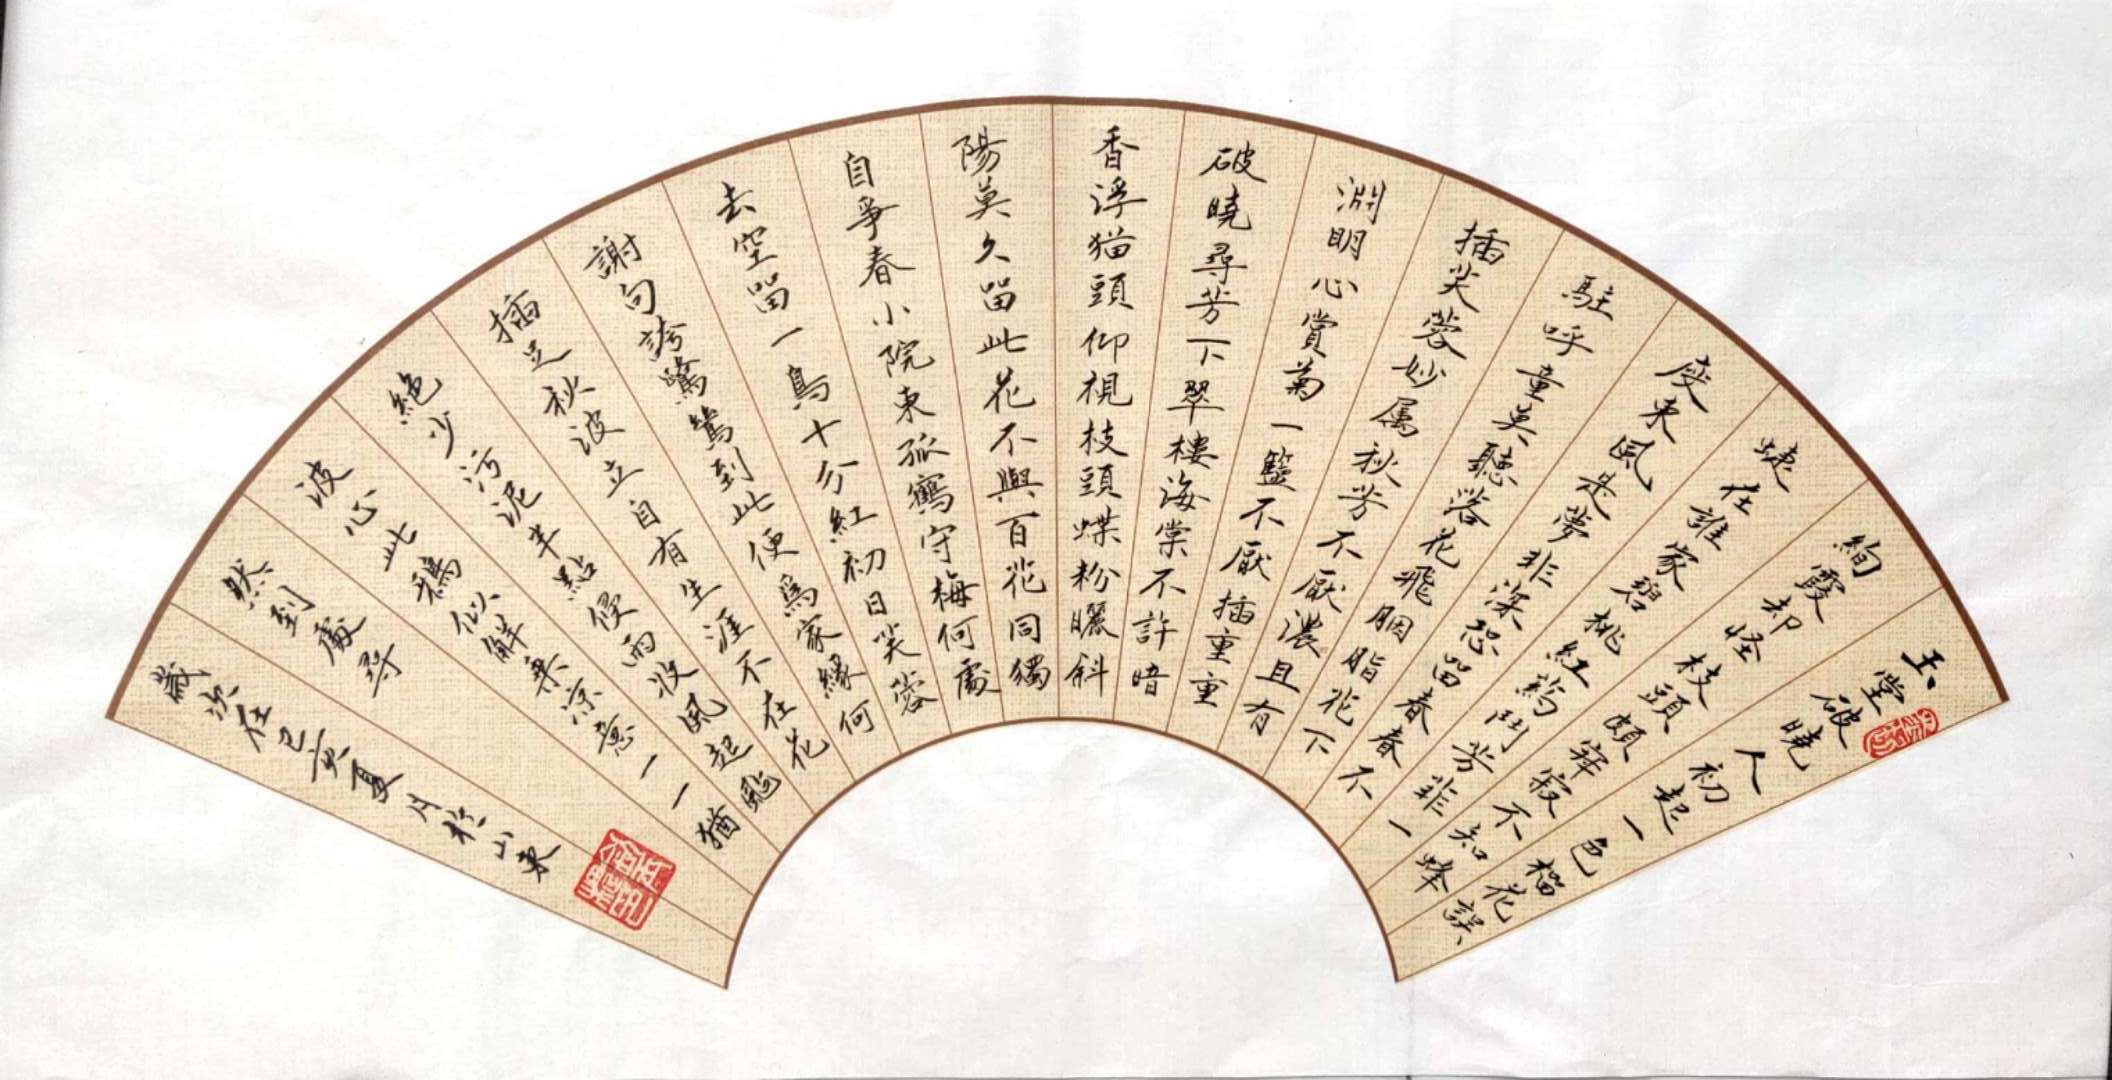 玉堂破曉人初起一色榴花誤
絢霞却怪枝頭頗寂不知蜂
蜨在誰家碧桃紅葯鬥芳菲一
座東風是夢非深恐留春春不
駐呼童莫聽落花飛胭脂花下
插芙蓉妙属秋芳不厭濃且有
淵明心賞菊一籃不厭插重重
破曉尋芳下翠樓海棠不許暗
香浮猫頭仰視枝頭蝶粉曬斜
陽莫久留此花不與百花同獨
自爭春小院東孤鶴守梅何處
去空留一鳥十分紅初日芙蓉
謝句誇鷺鶿到此便爲家緣何
插足秋波立自有生涯不在花
絕少污泥半點侵雨收風起颭
波心此似解乘凉意一一猶
然到處尋
歲次在己亥夏月於山東